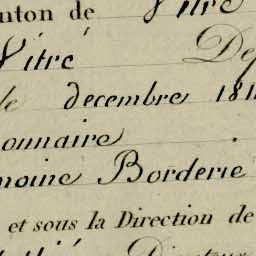 anton de Vitré
Vitré Dep
de decembre 181
onnaire
moine Borderie
et sous la Direction de